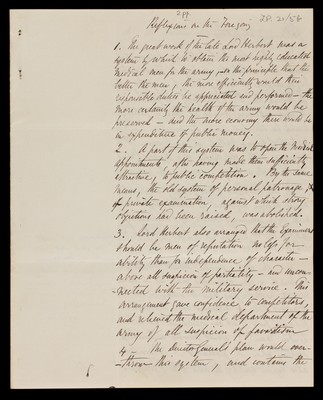 Reflexions on the Foregoing
1. The great work of the late Lord Herbert was a
system by which to obtain the most highly educated
medical men for the army, on the principle that the
better the men, the more efficiently would their
responsible duties be appreciated and performed — the
more certainly the health of the army would be
preserved — and the more economy there would be
in expenditure of public money.
2. A part of this system was to open the medical
appointments, after having made them sufficiently
attractive, to public competition. By the same
means, the old system of personal patronage, &
of private examination, against which strong
objections had been raised, was abolished.
3. Lord Herbert also arranged that the Examiners
should be men of reputation no less for
ability than for independence of character —
above all suspicion of partiality — and uncon-
-nected with the military service. This
arrangement gave confidence to competitors,
and relieved the medical department of the
Army of all suspicion of favoritism
4. The Director General's plan would over-
-throw this system, and contains the